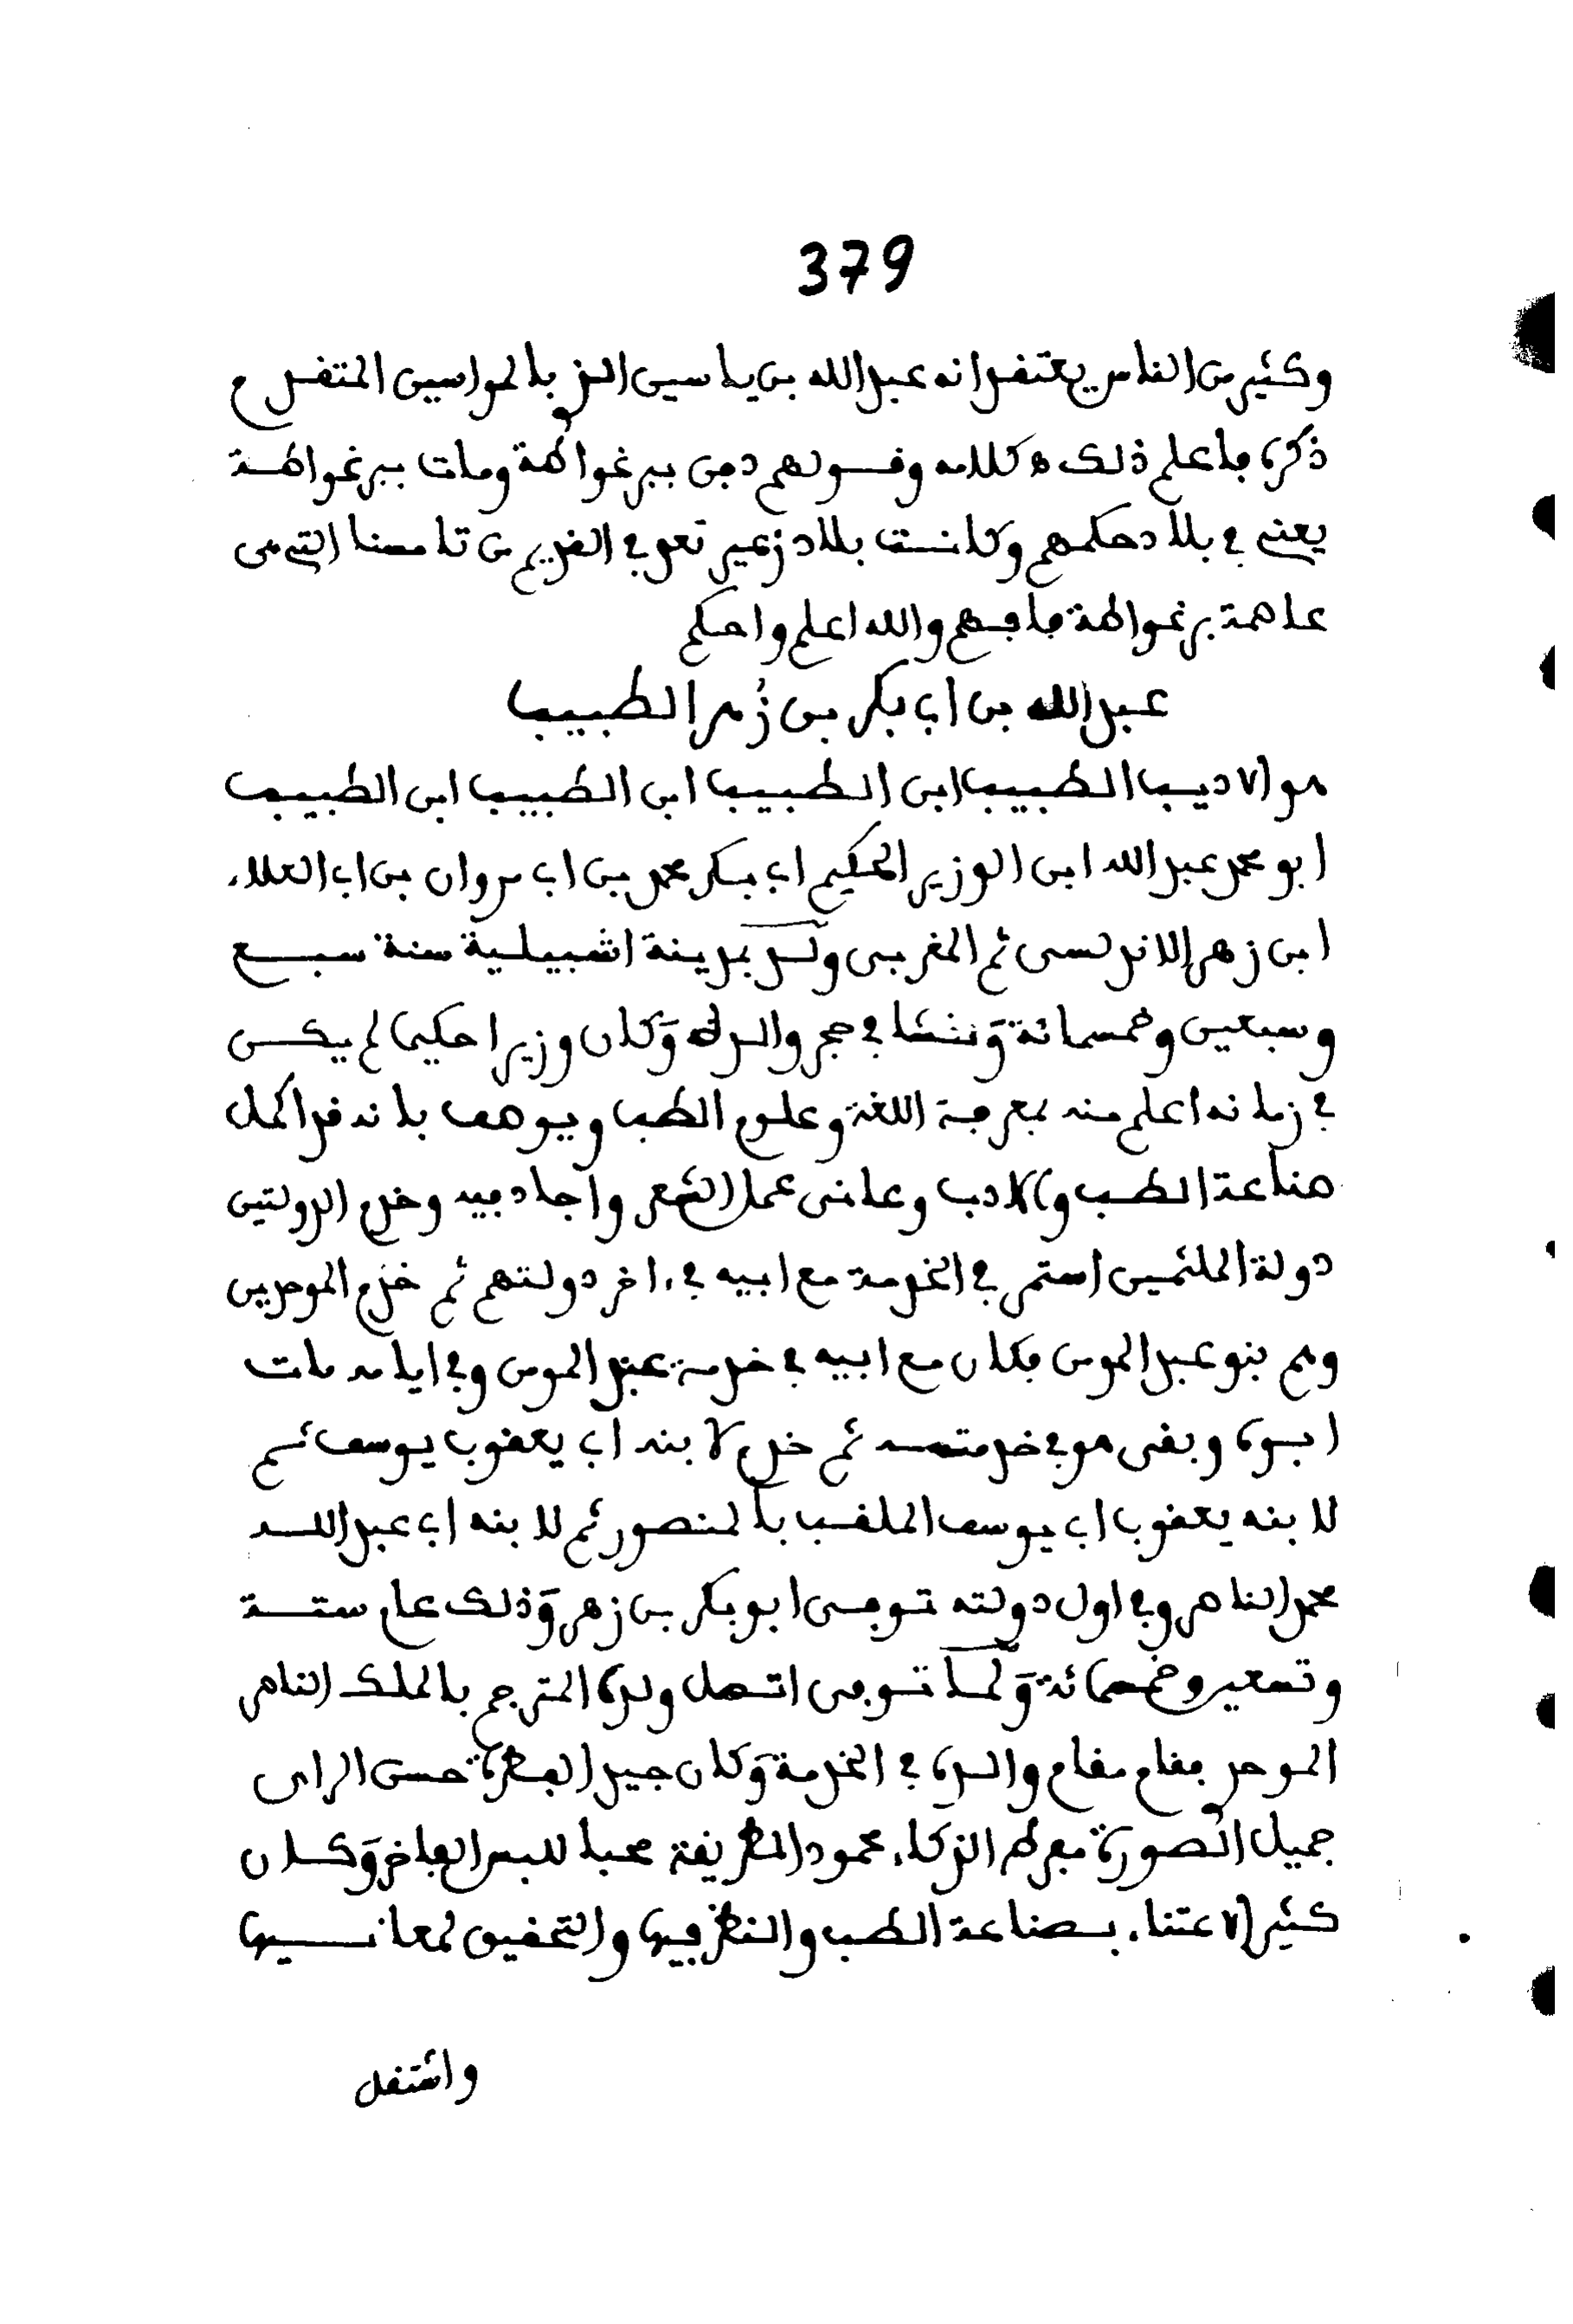 379
وكثير من الناس يعتقد انه عبد الله بن ياسين الذي بالمواسين المتقدم
ذكره فاعلم ذلك ه كلامه وقولهم دفن ببرغواطة ومات ببرغواطة
يعني في بلاد حكمهم وكانت بلاد زعير تعد في القديم من تامسنا التي هي
عاصمة برغواطة فافهم والله اعلم واحكم
عبد الله بن ابي بكر بن زُهر الطبيب
هو الاديب الطبيب ابن الطبيب ابن الطبيب ابن الطبيب
ابو محمد عبد الله ابن الوزير الحكيم ابي بكر محمد بن ابي مروان بن ابي العلاء
ابن زهر الاندلسي ثم المغربي ولد بمدينة اشبيلية سنة سبع
وسبعين وخمسمائة وَنشا في حجر والده وَكان وزيرا حكيما لم يكن
في زمانه اعلم منه بمعرفة اللغة وعلوم الطب ويوصف بانه قد اكمل
صناعة الطب والادب وعانى عمل الشعر واجاد فيه وخدم الدولتين
دولة الملثمين استمر في الخدمة مع ابيه في ءاخر دولتهم ثم خدم الموحدين
وهم بنو عبد المومن فكان مع ابيه في خدمة عبد المومن وفي ايامه مات
ابوه وبقى هو في خدمته ثم خدم لابنه ابي يعقوب يوسف ثم
لابنه يعقوب ابي يوسف الملقب بالمنصور ثم لابنه ابي عبد الله
محمد الناصر وفي اول دولته توفى ابو بكر بن زهر وَذلك عام ستة
وتسعين وخمسمائة وَلما توفى اتصل ولده المترجم بالملك الناصر
الموحد فقام مقام والده في الخدمة وَكان جيد الفطرة حسن الراى
جميل الصورة مفرط الذكاء محمود الطريقة محبا للبس الفاخر وَكان
كثير الاعتناء بصناعة الطب والنظر فيها والتحقيق لمعانيها
واشتغل